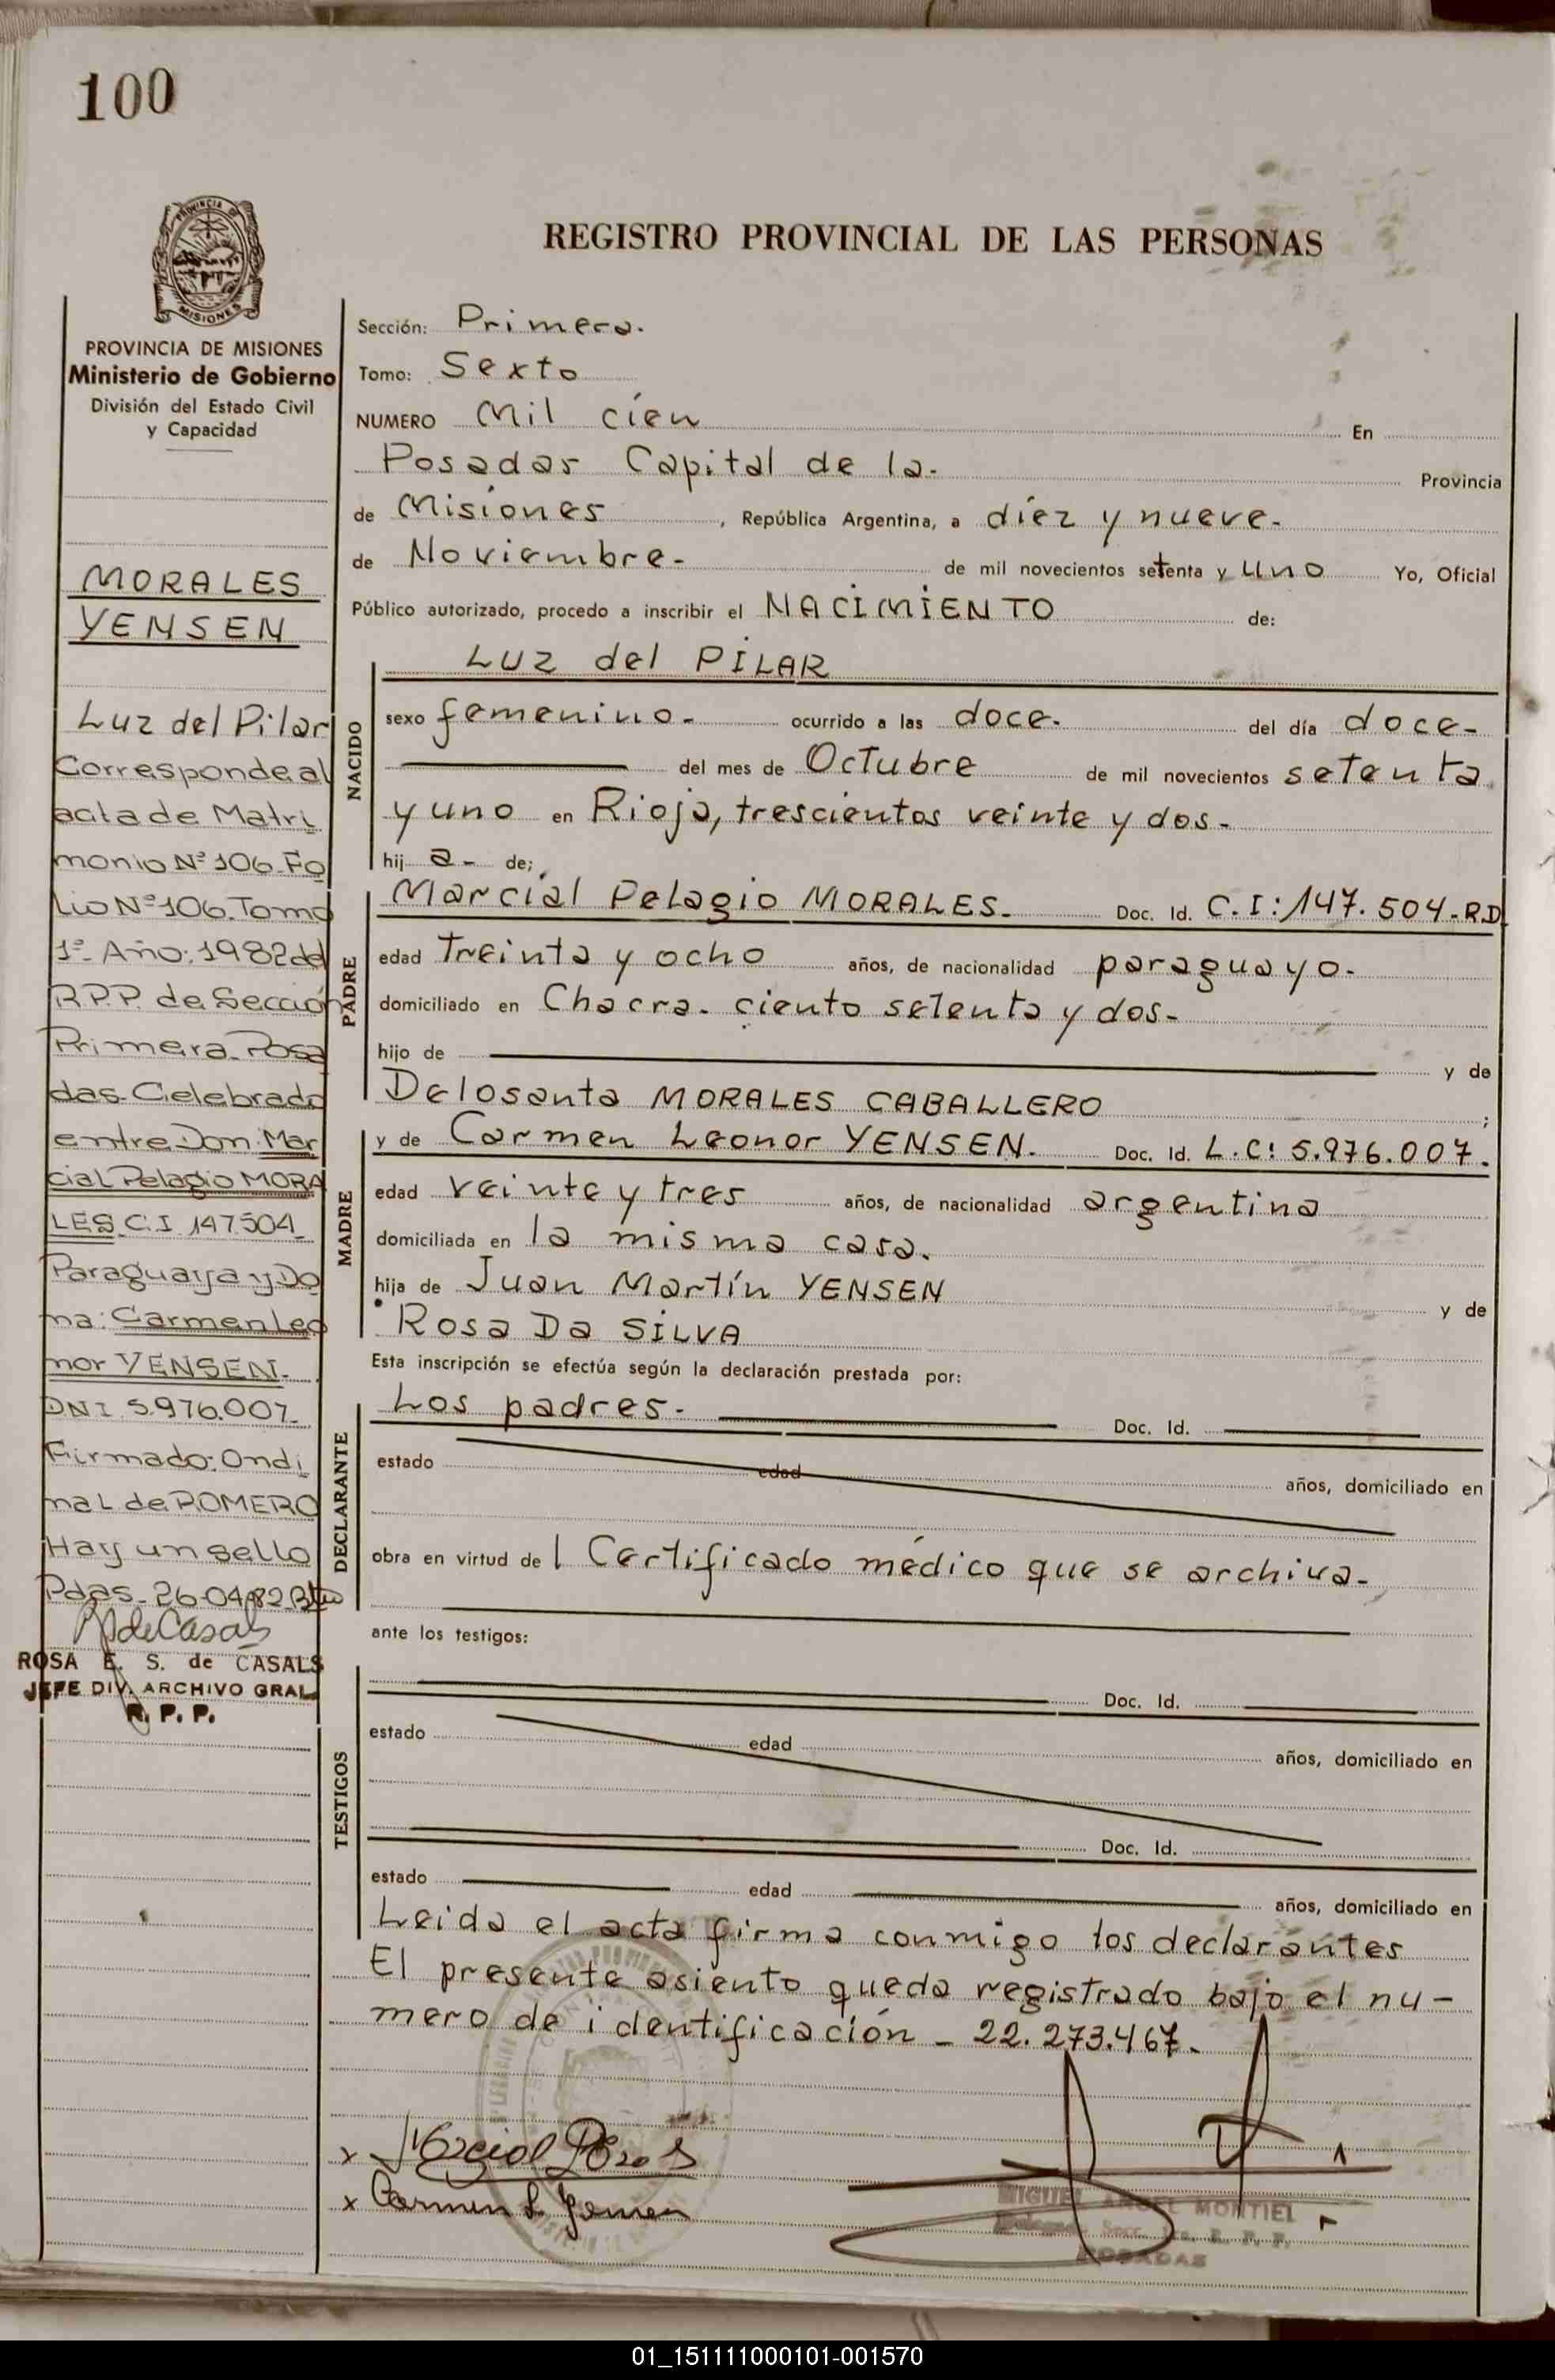 100
PROVINCIA DE
MISIONES
REGISTRO PROVINCIAL DE LAS PERSONAS
PROVINCIA DE MISIONES
Ministerio de Gobierno
División del Estado Civil
y Capacidad
MORALES
YENSEN
Luz del Pilar
Corresponde al
acta de Matri
monio Nº 106. Fo
lio Nº 106. Tomo
1º- Año: 1982 del
R.P.P. de Sección
Primera. Posa
das. Celebrado
entre Don: Mar
cial Pelagio MORA
LES C.I 147504
Paraguaya y Do
na: Carmen Leo
nor YENSEN.
DNI 5.976.007
Firmado: Ondi
na L. de ROMERO
Hay un sello
Pdas. 26-04-82
RdeCasals
ROSA E. S. de CASALS
JEFE DIV. ARCHIVO GRAL
R. P. P.
Sección: Primera.
Tomo: Sexto
NUMERO Mil cien En
Posadas Capital de la. Provincia
de Misiones, República Argentina, a diez y nueve.
de Noviembre. de mil novecientos setenta y uno Yo, Oficial
Público autorizado, procedo a inscribir el NACIMIENTO de:
NACIDO
Luz del PILAR
sexo femenino. ocurrido a las doce. del día doce.
del mes de Octubre de mil novecientos setenta
y uno en Rioja, trescientos veinte y dos.
hij a. de:
PADRE
Marcial Pelagio MORALES. Doc. Id. C.I: 147.504.R.D
edad treinta y ocho años, de nacionalidad paraguayo.
domiciliado en Chacra. ciento setenta y dos.
hijo de y de
Delosanta MORALES CABALLERO ;
MADRE
y de Carmen Leonor YENSEN. Doc. Id. L.C: 5.976.007.
edad veinte y tres años, de nacionalidad argentina
domiciliada en la misma casa.
hija de Juan Martín YENSEN y de
Rosa Da SILVA
Esta inscripción se efectúa según la declaración prestada por:
DECLARANTE
Los padres. Doc. Id.
estado edad años, domiciliado en
obra en virtud de l Certificado médico que se archiva.
ante los testigos:
TESTIGOS
Doc. Id.
estado edad años, domiciliado en
Doc. Id.
estado edad años, domiciliado en
Leida el acta firma conmigo los declarantes
El presente asiento queda registrado bajo el nu-
mero de identificación - 22.273.467.
x Marcial
x Carmen L. Yensen
MIGUEL ANGEL MONTIEL
POSADAS
01_151111000101-001570